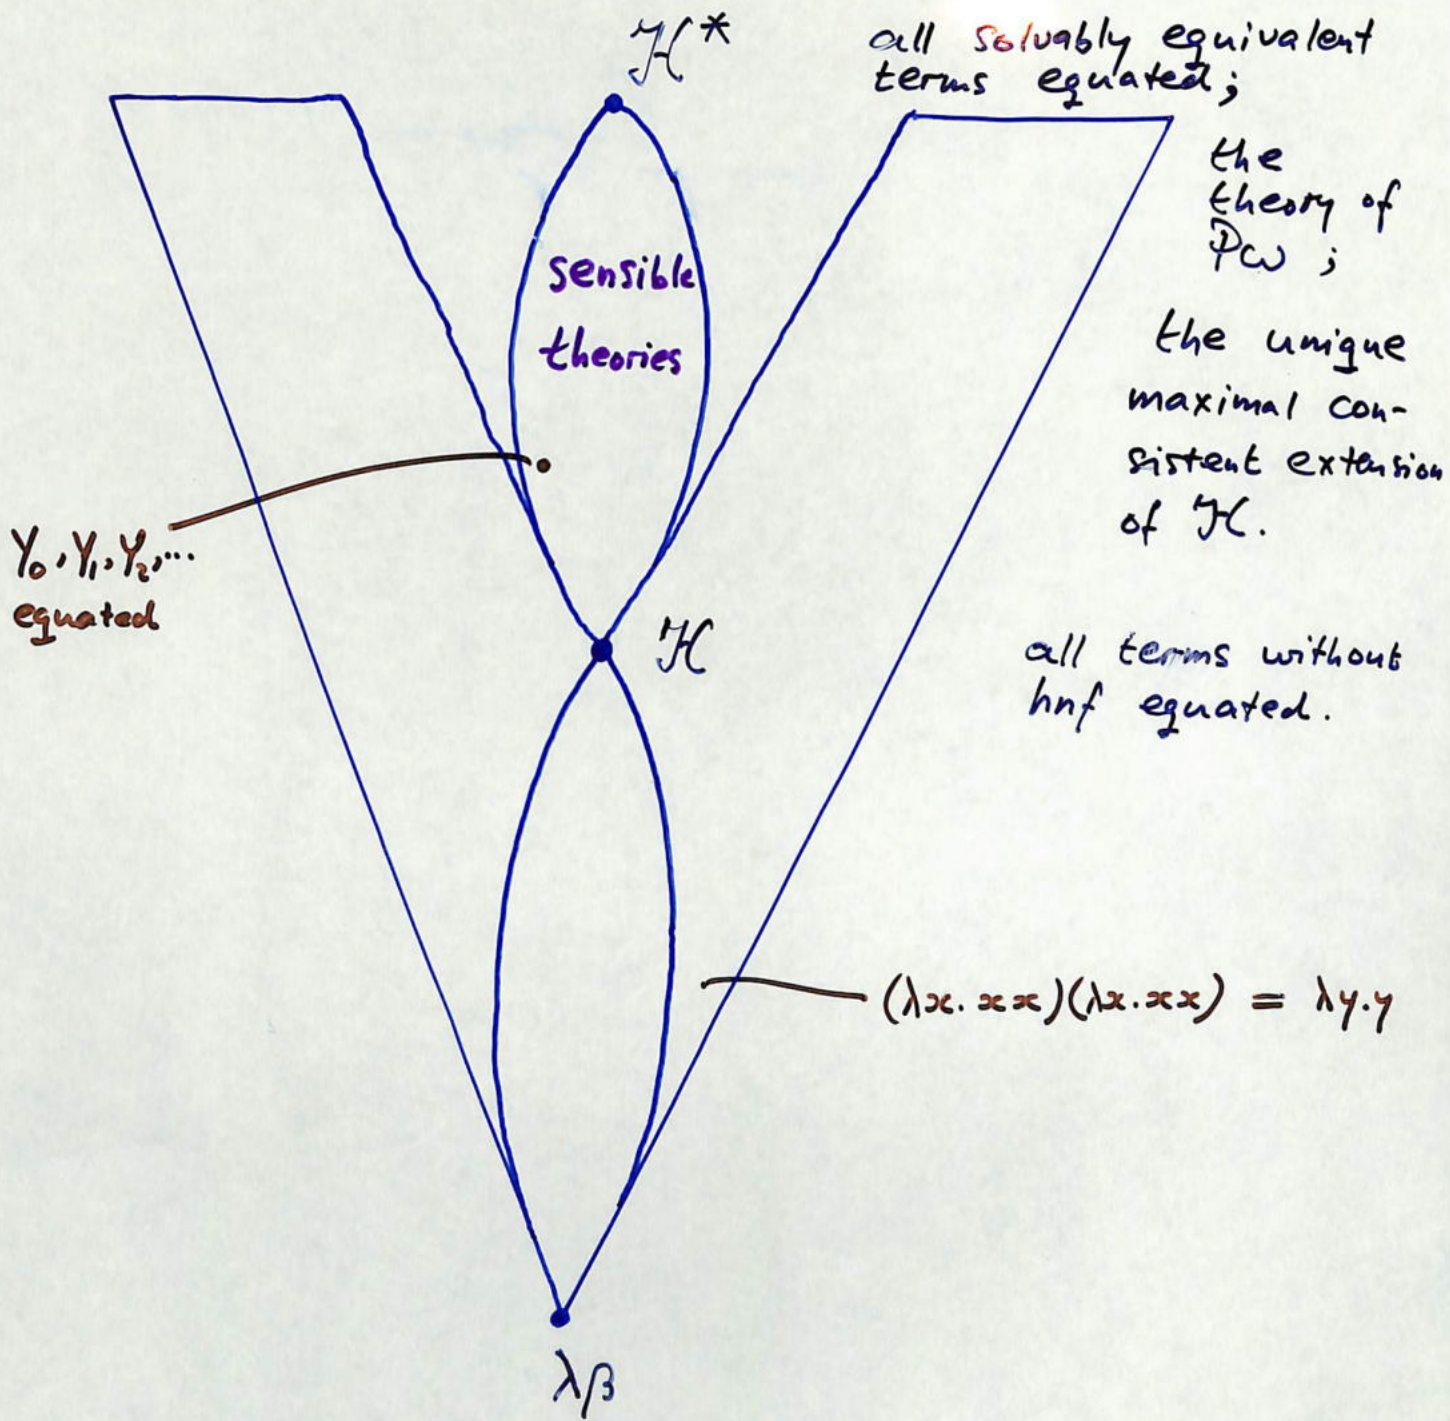 ℋ*
all solvably equivalent
terms equated;
the
theory of
Pω ;
the unique
maximal con-
sistent extension
of ℋ.
sensible
theories
Y₀, Y₁, Y₂, ...
equated
ℋ
all terms without
hnf equated.
(λx. xx)(λx. xx) = λy. y
λβ